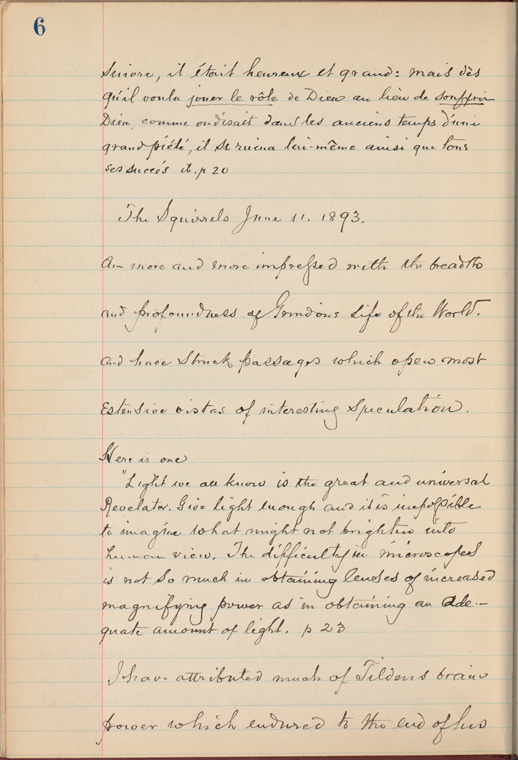 6
suivre, il était heureux et grand: mais dès
qu'il voulu jouer le rôle de Dieu au lieu de souffrir
Dieu, comme on disait dans les anciens temps d'une
grand piété, il se ruina lui-même ainsi que tous
ses succés it. p 20
The Squirrels June 11. 1893.
Am more and more impressed with the breadth
and profoundness of Grindons Life of the World.
and have struck passages which open most
extensive vistas of interesting speculation.
Here is one
"Light we all know is the great and universal
Revelator. Give light enough and it is impossible
to imagine what might not brighten into
human view. The difficulty in microscopes
is not so much in obtaining lenses of increased
magnifying power as in obtaining an ade-
quate amount of light. p 23
I have attributed much of Tildens brain
power which endured to the end of his